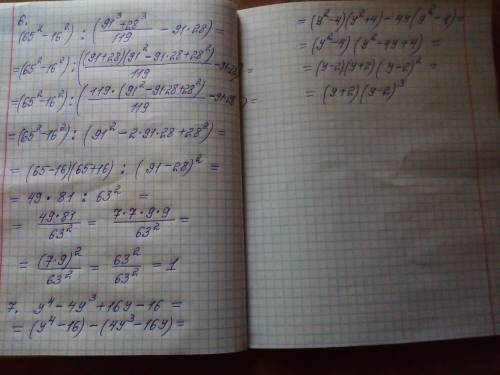 6.
(65²-16²) : (91³+28³/119 - 91·28) =
=(65²-16²) : ((91+28)(91²-91·28+28²)/119 - 91·28) =
=(65²-16²) : (119·(91²-91·28+28²)/119 - 91·28) =
=(65²-16²) : (91²-2·91·28+28²) =
= (65-16)(65+16) : (91-28)² =
= 49·81 : 63² =
= 49·81/63² = 7·7·9·9/63² =
= (7·9)²/63² = 63²/63² = 1
7. y⁴-4y³+16y-16 =
= (y⁴-16)-(4y³-16y) =
= (y²-4)(y²+4)-4y(y²-4) =
= (y²-4)(y²-4y+4) =
= (y-2)(y+2)(y-2)² =
= (y+2)(y-2)³